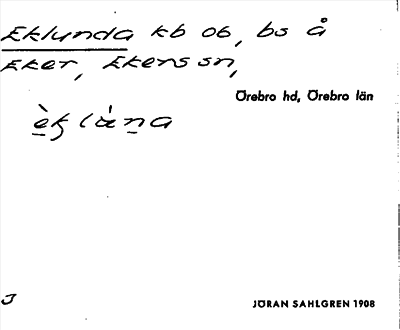 Eklunda kb 06, bs å
Eker, Ekers sn,
Örebro hd, Örebro län
J
JÖRAN SAHLGREN 1908